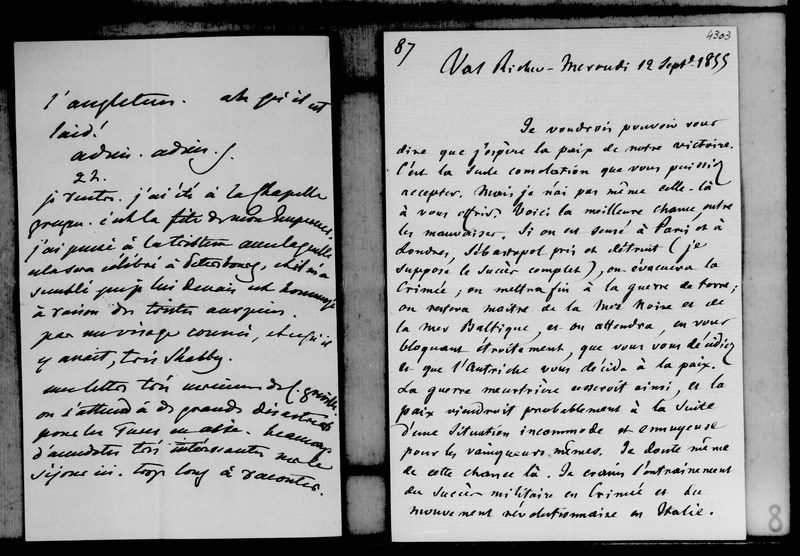 l'angleterre. ah qu'il est
laid!
adieu. adieu.
2 h.
je rentre. j'ai été à la Chapelle
grecque. c'est la fête de mon Empereur,
j'ai pensé à la tristesse avec laquelle
elle sera célébrée à Petersbourg, et il m'a
semblé que je lui devais cet hommage
à raison des tristes auspices.
pas un visage connu, et ce qu'il
y avait, très Shabby.
une lettre très curieuse de C. Greville.
on s'attend à de grands désastres
pour les Turcs en asie. beaucoup
d'anecdotes très intéressantes sur le
séjour ici. trop long à raconter.
87
4303
Val Richer - Mercredi 12 Septe. 1855
Je voudrois pouvoir vous
dire que j'espère la paix de notre victoire.
C'est la seule consolation que vous puissiez
accepter. Mais je n'ai pas même celle-là
à vous offrir. Voici la meilleure chance entre
les mauvaises. Si on est sensé à Paris et à
Londres, Sébastopol pris et détruit (je
suppose le succès complet), on évacuera la
Crimée; on mettra fin à la guerre de terre;
on restera maître de la Mer Noire et de
la Mer Baltique, et on attendra, en vous
bloquant étroitement, que vous vous décidiez
et que l'Autriche vous décide à la paix.
La guerre meurtrière cesseroit ainsi, et la
paix viendroit probablement à la suite
d'une situation incommode et ennuyeuse
pour les vainqueurs mêmes. Je doute même
de cette chance là. Je crains l'entrainement
du succès militaire en Crimée et du
mouvement révolutionnaire en Italie.
8